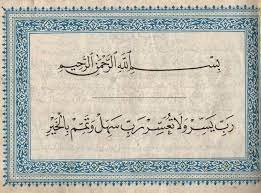 بِسْمِ اللَّهِ الرَّحْمَٰنِ الرَّحِيمِ
رَبِّ يَسِّرْ وَلَا تُعَسِّرْ رَبِّ سَهِّلْ وَتَمِّمْ بِالْخَيْرِ